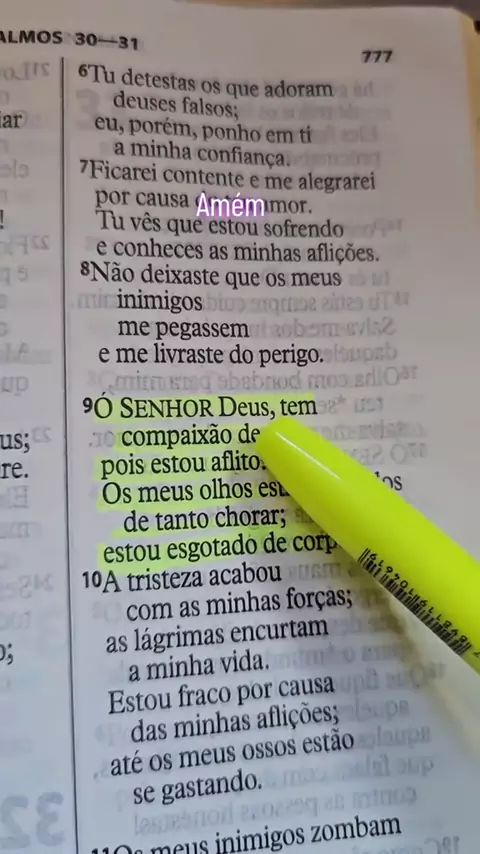 ALMOS 30—31
777
6Tu detestas os que adoram
deuses falsos;
eu, porém, ponho em ti
a minha confiança.
7Ficarei contente e me alegrarei
por causa amor.
Amém
Tu vês que estou sofrendo
e conheces as minhas aflições.
8Não deixaste que os meus
inimigos
me pegassem
e me livraste do perigo.
9Ó SENHOR Deus, tem
compaixão de
pois estou aflito.
Os meus olhos
de tanto chorar;
estou esgotado de
10A tristeza acabou
com as minhas forças;
as lágrimas encurtam
a minha vida.
Estou fraco por causa
das minhas aflições;
até os meus ossos estão
se gastando.
11Os meus inimigos zombam
iar
!
us;
re.
o;